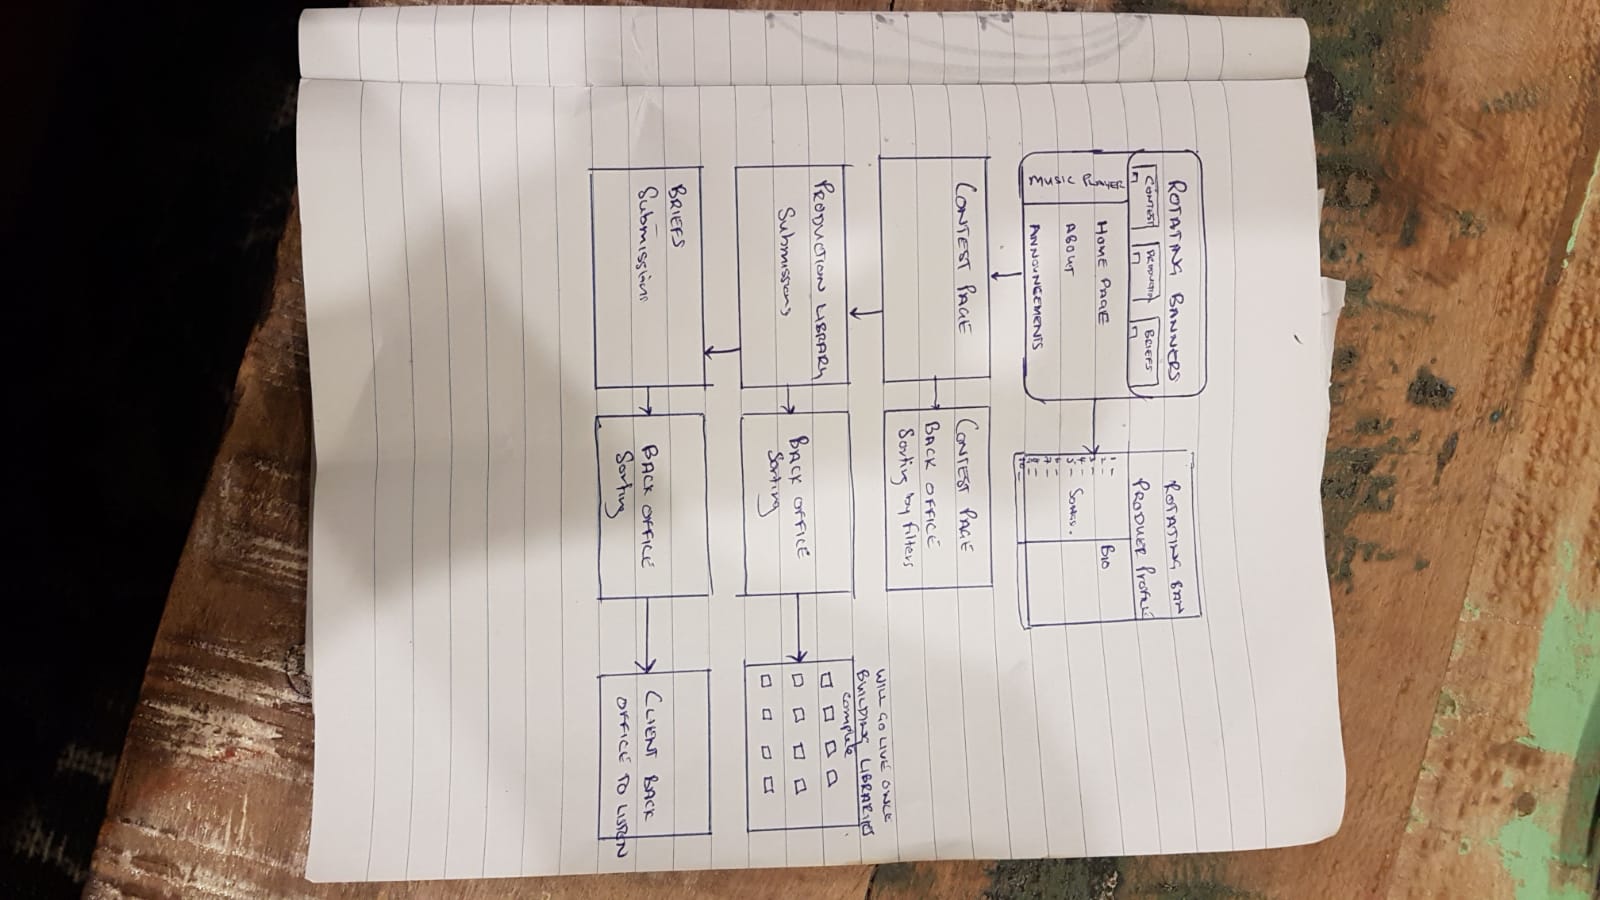 ROTATING BANNERS
CONTEST
PRODUCTION
BRIEFS
MUSIC PLAYER
HOME PAGE
ABOUT
ANNOUNCEMENTS
ROTATING BAN
PRODUER PROFILE
1 -
2 -
3 -
4 -
5 -
6 -
7 -
8 -
9 -
10 -
SONGS.
BIO
CONTEST PAGE
CONTEST PAGE
BACK OFFICE
Sorting by filters
PRODUCTION LIBRARY
Submissions
BACK OFFICE
Sorting
WILL GO LIVE ONCE
BUILDING LIBRARIES
complete
BRIEFS
Submissions
BACK OFFICE
Sorting
CLIENT BACK
OFFICE TO LISTEN